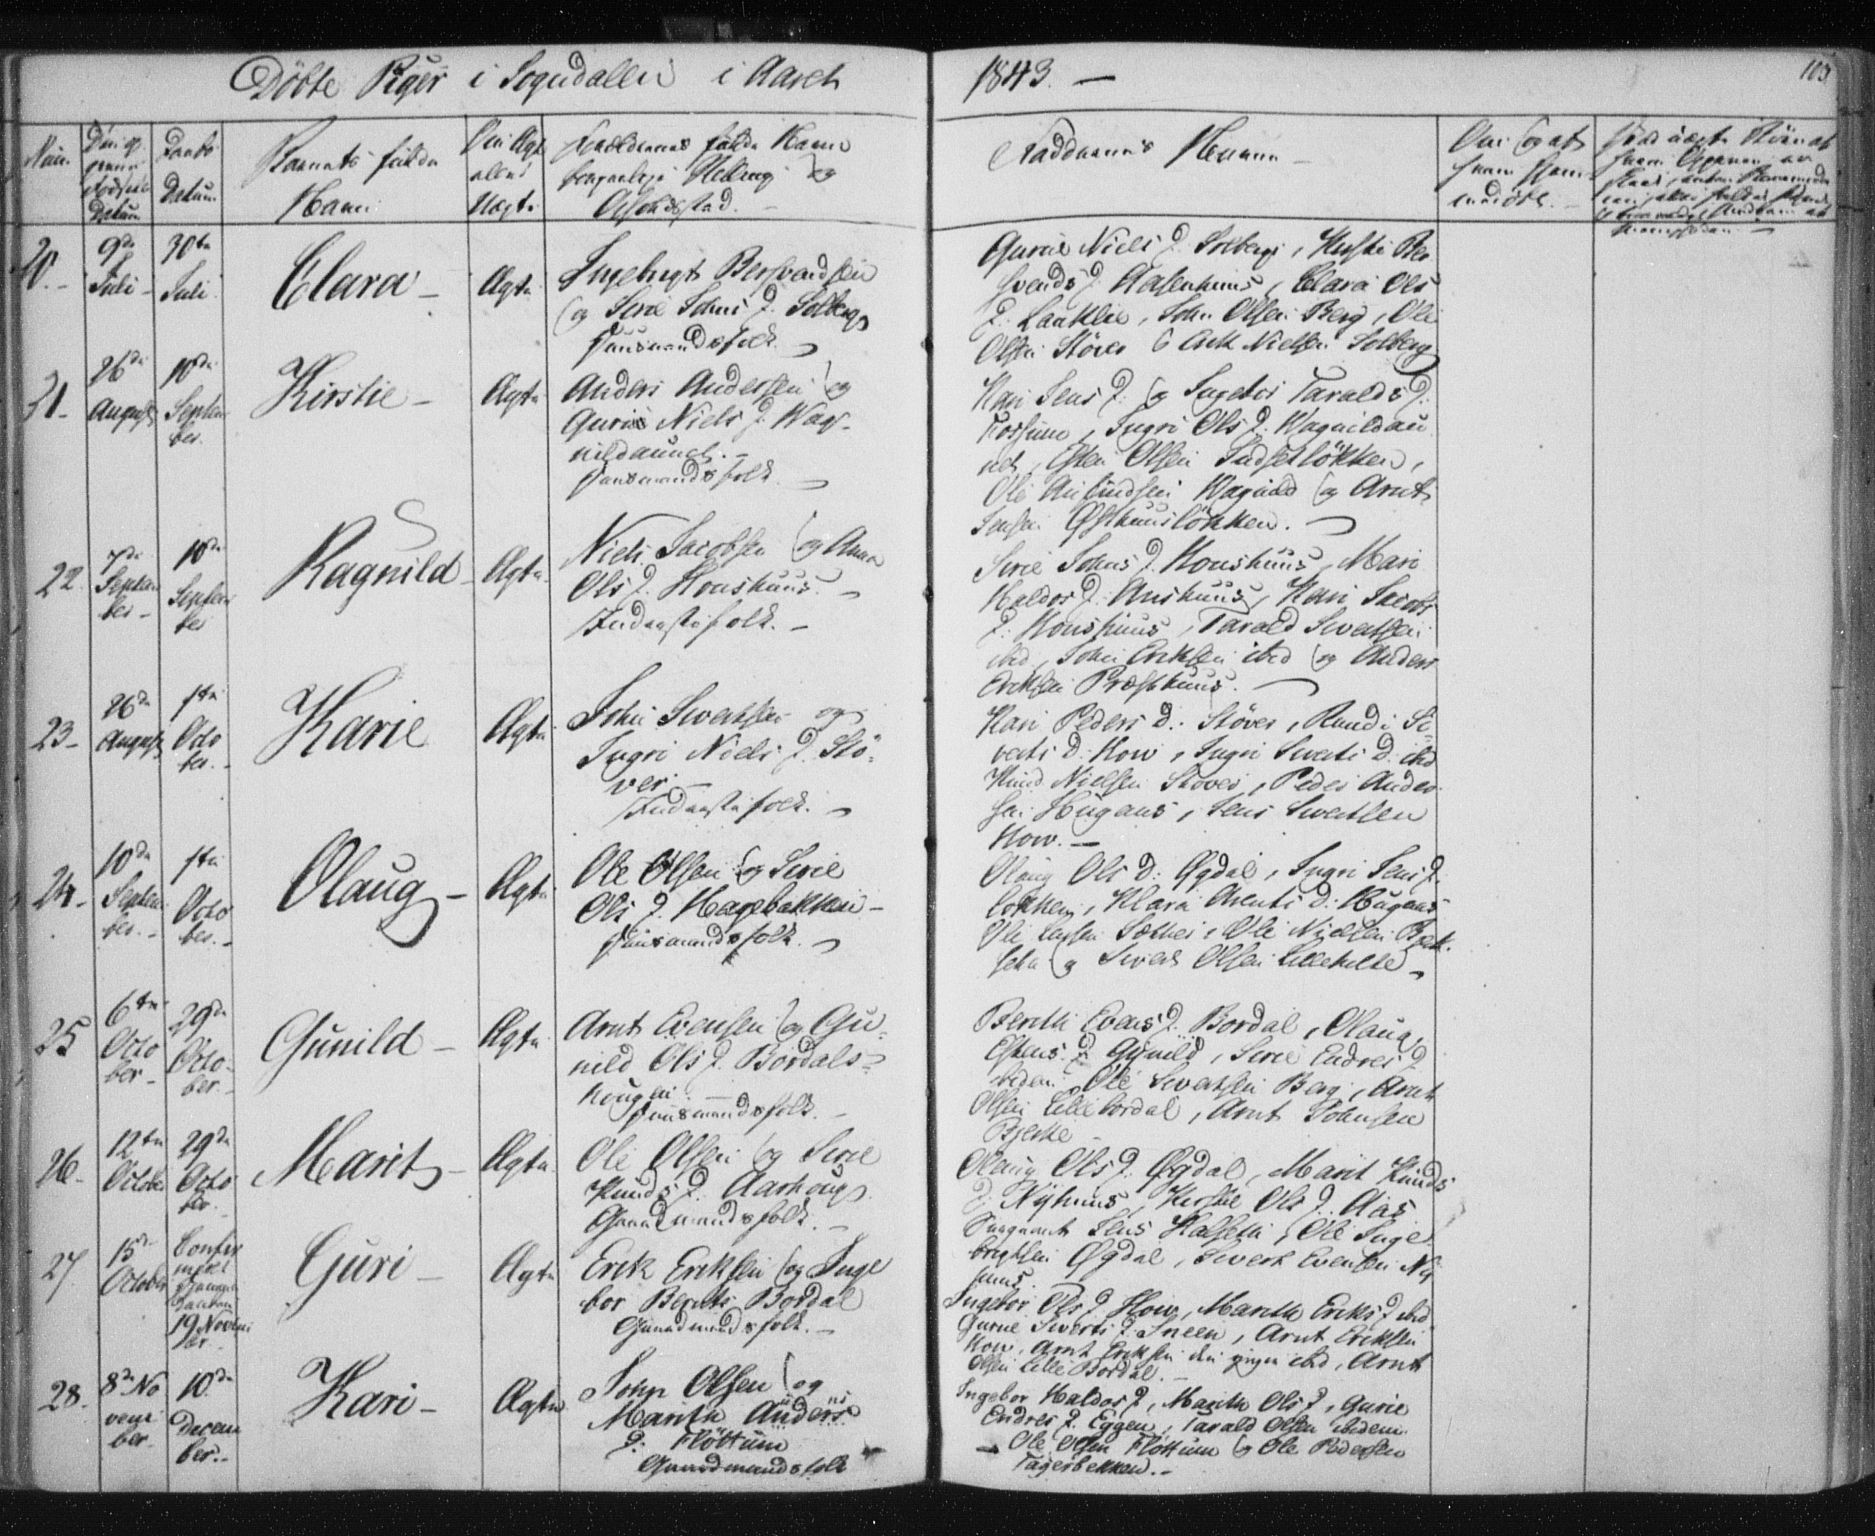 Döbte Piger i Sogndallen i Aaret 1843. —
103
Num.
Datum
Daabs
Datum.
Barnets fulde
Navn
Om Ægte
eller
Uægte
Forældrenes fulde Navn
og
Opholdsted. —
Faddernes Navne —
Om og af
hvem hjem
medöbt. —
20. —
9de
Juli —
30te
Juli.
Clara —
Ægte
Ingebrigt Bersvendsen
og Sirie Johns D. Solberg
Huusmandsfolk. —
Gurue Niels D. Solberg, Kirsti Ber
svends D. Aasenhuus, Clara Ols
D. Laaklie, John Olsen Berg, Ole
Olsen Störer & Erik Nielsen Solberg
21 —
26de
August
10de
Septem
ber.
Kirstie —
Ægte
Anders Andersen og
Gurie Niels D. Wag-
nildaunet. —
Huusmandsfolk —
Kari Jens D. og Taralds D.
Fossum, Ingri Ols D. Wagnildau
net, Esten Olsen Indsetlökken,
Ole Wagnild og Arnt
Jensen Östhuuslökken. —
22.
7de
Septem
ber —
10de
Septem
ber
Ragnild —
Ægte
Niels Jacobsen og Anna
Ols D. Houshuus. —
Inderstefolk. —
Sirie Johns D. Houshuus, Mari
Haldos D. Aushuus, Kari Jacobs
D. Houshuus, Tarald Sivertsen
ibd, John Eriksen ibd og Anders
Eriksen Præsthuus. —
23 —
26de
August
1ste
Octo
ber. —
Karie
Ægte
John Sivertsen og
Ingri Niels D. Stö-
ver —
Inderstefolk. —
Kari Peders D. Stöver, Randi Si-
verts D. How, Ingri Siverts D. ibd
Knud Nielsen Stöver, Peder Ander
sen Hugaas, Jens Sivertsen
How. —
24. —
10de
Septem
ber. —
1ste
Octo
ber. —
Olaug —
Ægte
Ole Olsen og Sirie
Ols D. Hagebakken —
Huusmandsfolk. —
Olaug Ols D. Øgdal, Ingri Jens D.
lökken, Klara Arents D. Hugaas
Ole Larsen Sæther, Ole Nielsen Bak-
og Sivert Olsen
25
6te
Octo
ber —
29de
Octo-
ber. —
Gunild —
Ægte
Arnt Evensen og Gu-
nild Ols D. Bordals-
hougen. —
Huusmandsfolk. —
Berith Evens D. Bordal, Olaug
Estens D. Gynild, Sirie Endres D
ibidem, Ole Sivertsen Berg, Arnt
Olsen Lillebordal, Arnt Johnsen
Bjerke
26 —
12te
October
29de
Octo
ber. —
Marit —
Ægte
Ole Olsen og Sirie
Knuds D. Aashoug.
Gaardmandsfolk. —
Olaug Ols D. Øgdal, Marit Knuds
D. Nyhuus, Kirstie Ols D. Aas
Jens Halseth, Ole Inge
brigtsen Øgdal, Sivert Evensen Ny
huus.
27
15de
October
Confir
meret
19 Novem
ber
Guri —
Ægte
Erik Eriksen og Inge
bor Bernts Bordal
Gaardmandsfolk. —
Ingebor Ols D How, Marith Eriks D ibd
Gurue Siverts D. Sneen, Arnt Eriksen
How, Arnt Eriksen den yngre ibd, Arnt
Olsen Lille Bordal. —
28. —
8de No
vem
ber
10de
Decem
ber. —
Kari —
Ægte
John Olsen og
Marith Anders
D. Flöttum
Gaardmandsfolk
Ingebor Haldos D, Marith Ols D, Gurie
Endres D. Eggen, Tarald Olsen ibidem
— Ole Olsen Flöttum og Ole Pedersen
Tagerbekken. —